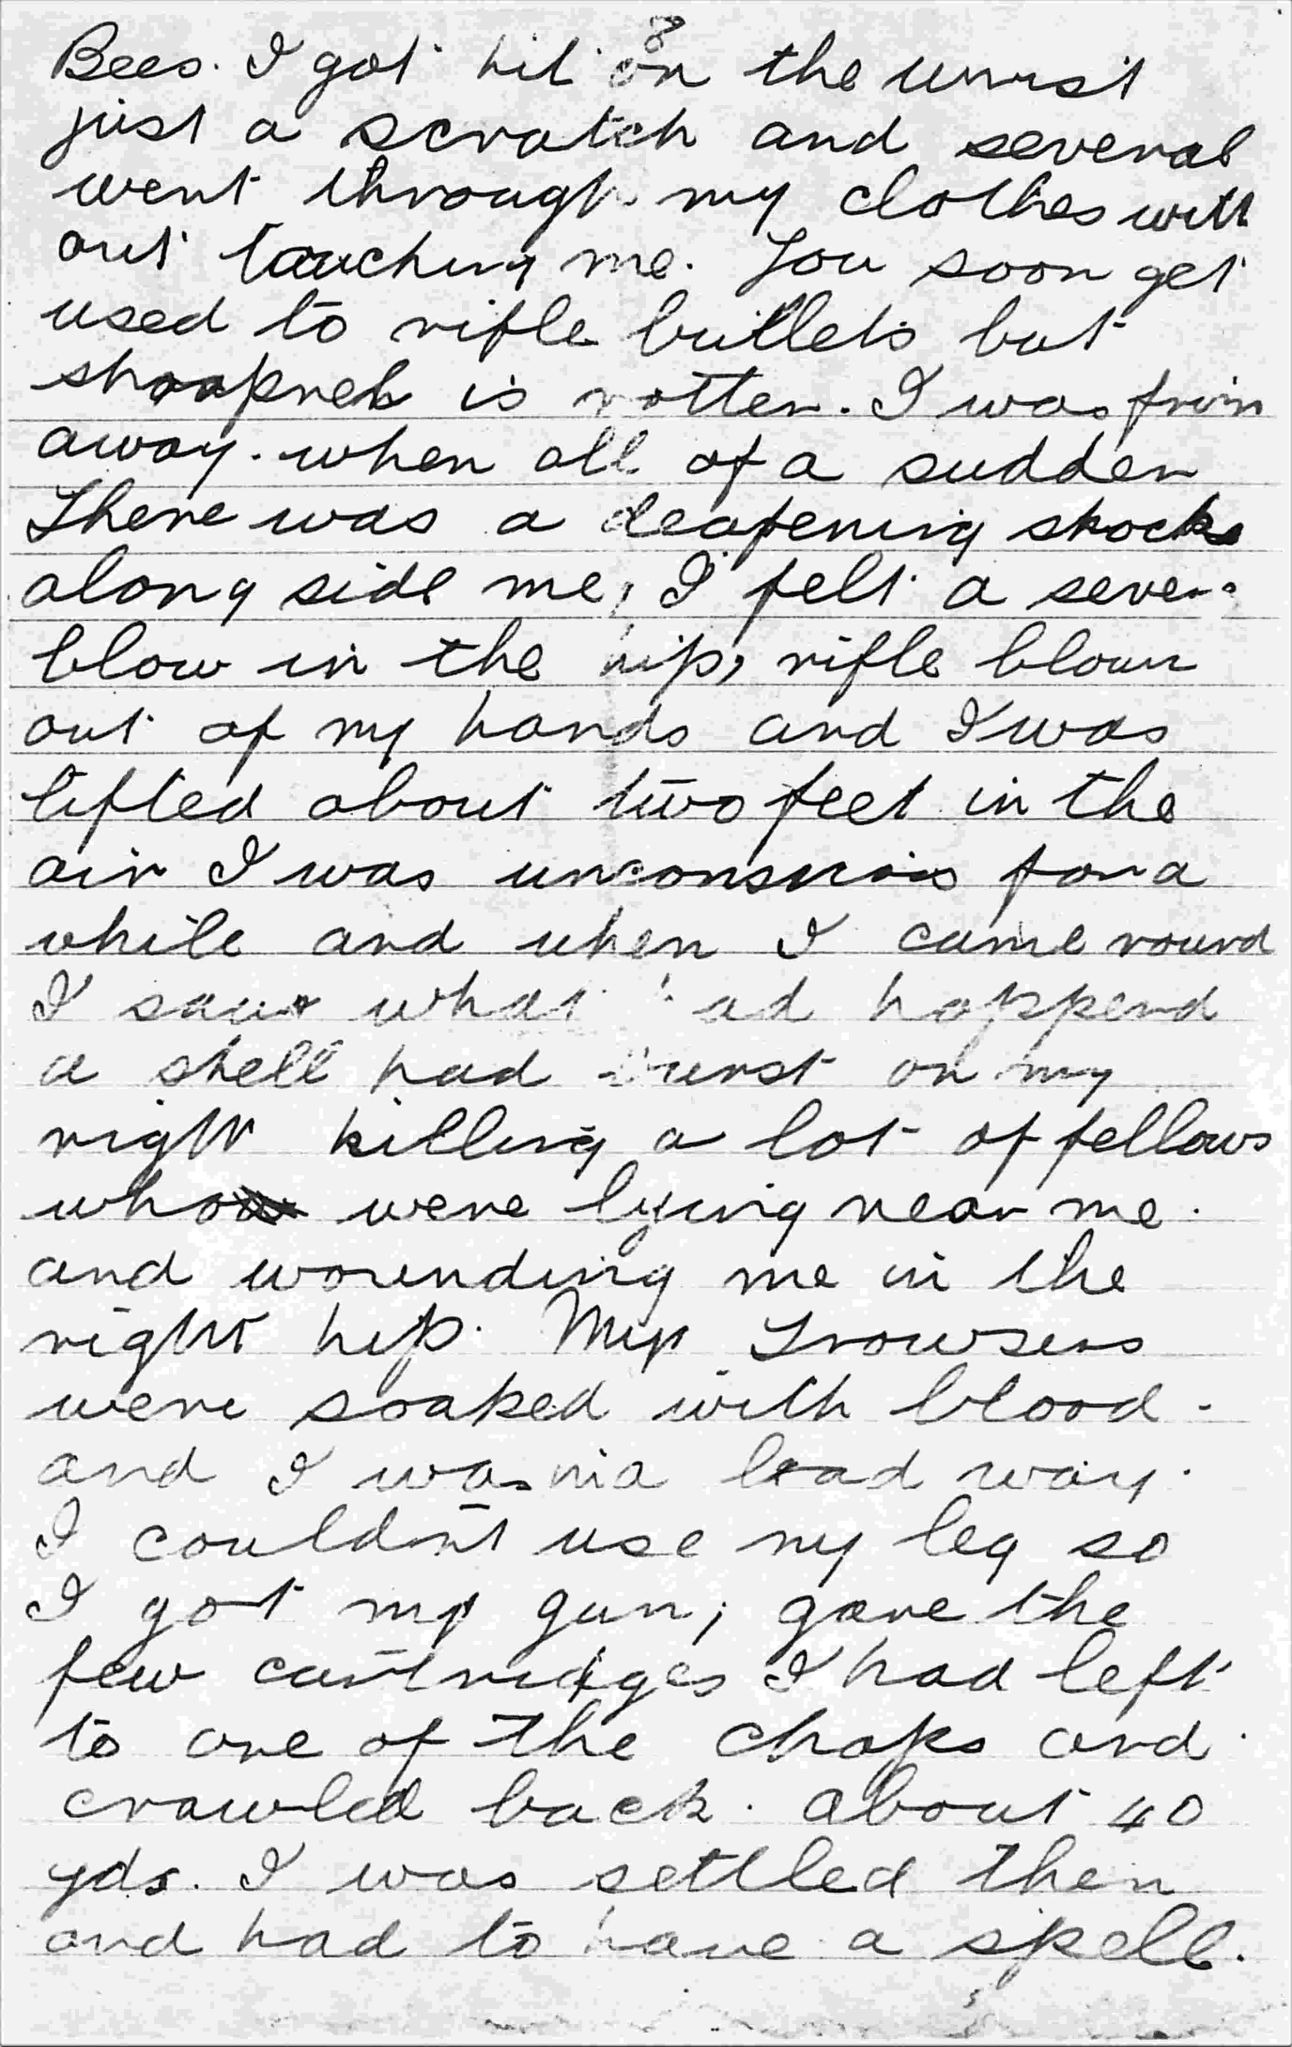 8
Bees. I got hit on the wrist
just a scratch and several
went through my clothes with
out touching me. You soon get
used to rifle bullets but
shrapnel is rotten. I was firin
away. when all of a sudden
There was a deafening shock
along side me, I felt a severe
blow in the hip, rifle blown
out of my hands and I was
lifted about two feet in the
air I was unconscious for a
while and when I came round
I saw what had happend
a shell had burst on my
right killing a lot of fellows
who were lying near me.
and wounding me in the
right hip. My Trowsers
were soaked with blood.
and I was in a bad way.
I couldn't use my leg so
I got my gun, gave the
few cartridges I had left
to one of the chaps and
crawled back. about 40
yds. I was settled then
and had to have a spell.